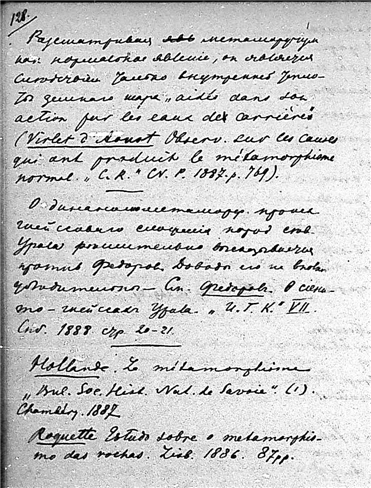 128.
Рассматривая явл метаморфизм
как нормальное явление, он является
следствием только внутренней тепло-
ты земного шара "aidés dans son
action fur les eaux des carrières"
(Virlet d'Aoust Observ. sur les causes
qui ont produit le métamorphisme
normal. "C.R." CV. P. 1887. p. 769).
О динамометаморф. происх
гнейсового сложения пород
Урала решительно высказывается
против Федоров. Доводы его не вполне
убедительны — См. Федоров. О слюн
то-гнейсах Урала. "И.Г.К." VII.
Спб. 1888 стр. 20-21.
Hollande. Le métamorphisme
"Bul. Soc. Hist. Nat. de Savoie". (1).
Chambéry. 1887
Roquette Estudo sobre o metamorphis-
mo das rochas. Lisb. 1886. 87 pp.